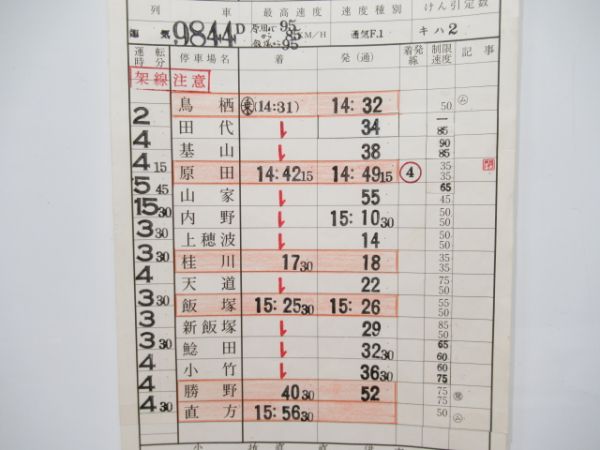 列 車 最高速度 速度種別 けん引定数
9844D 95 85 KM/H 95 通気F.1 キハ2
運転時分 停車場名 着 発(通) 着発線 制限速度 記事
架線注意
鳥栖 (14:31) 14:32 50
2 田代 34 — 85
4 基山 38 90 85
4 15 原田 14:42 15 14:49 15 4 35 35
5 45 山家 55 65 45
15 30 内野 15:10 30 50 50
3 30 上穂波 14 50 50
3 30 桂川 17 30 18 35 35
4 天道 22 75 50
3 30 飯塚 15:25 30 15:26 55 50
3 新飯塚 29 85 50
3 30 鯰田 32 30 65 60
4 小竹 36 30 60 75
4 勝野 40 30 52 75 75
4 30 直方 15:56 30 50